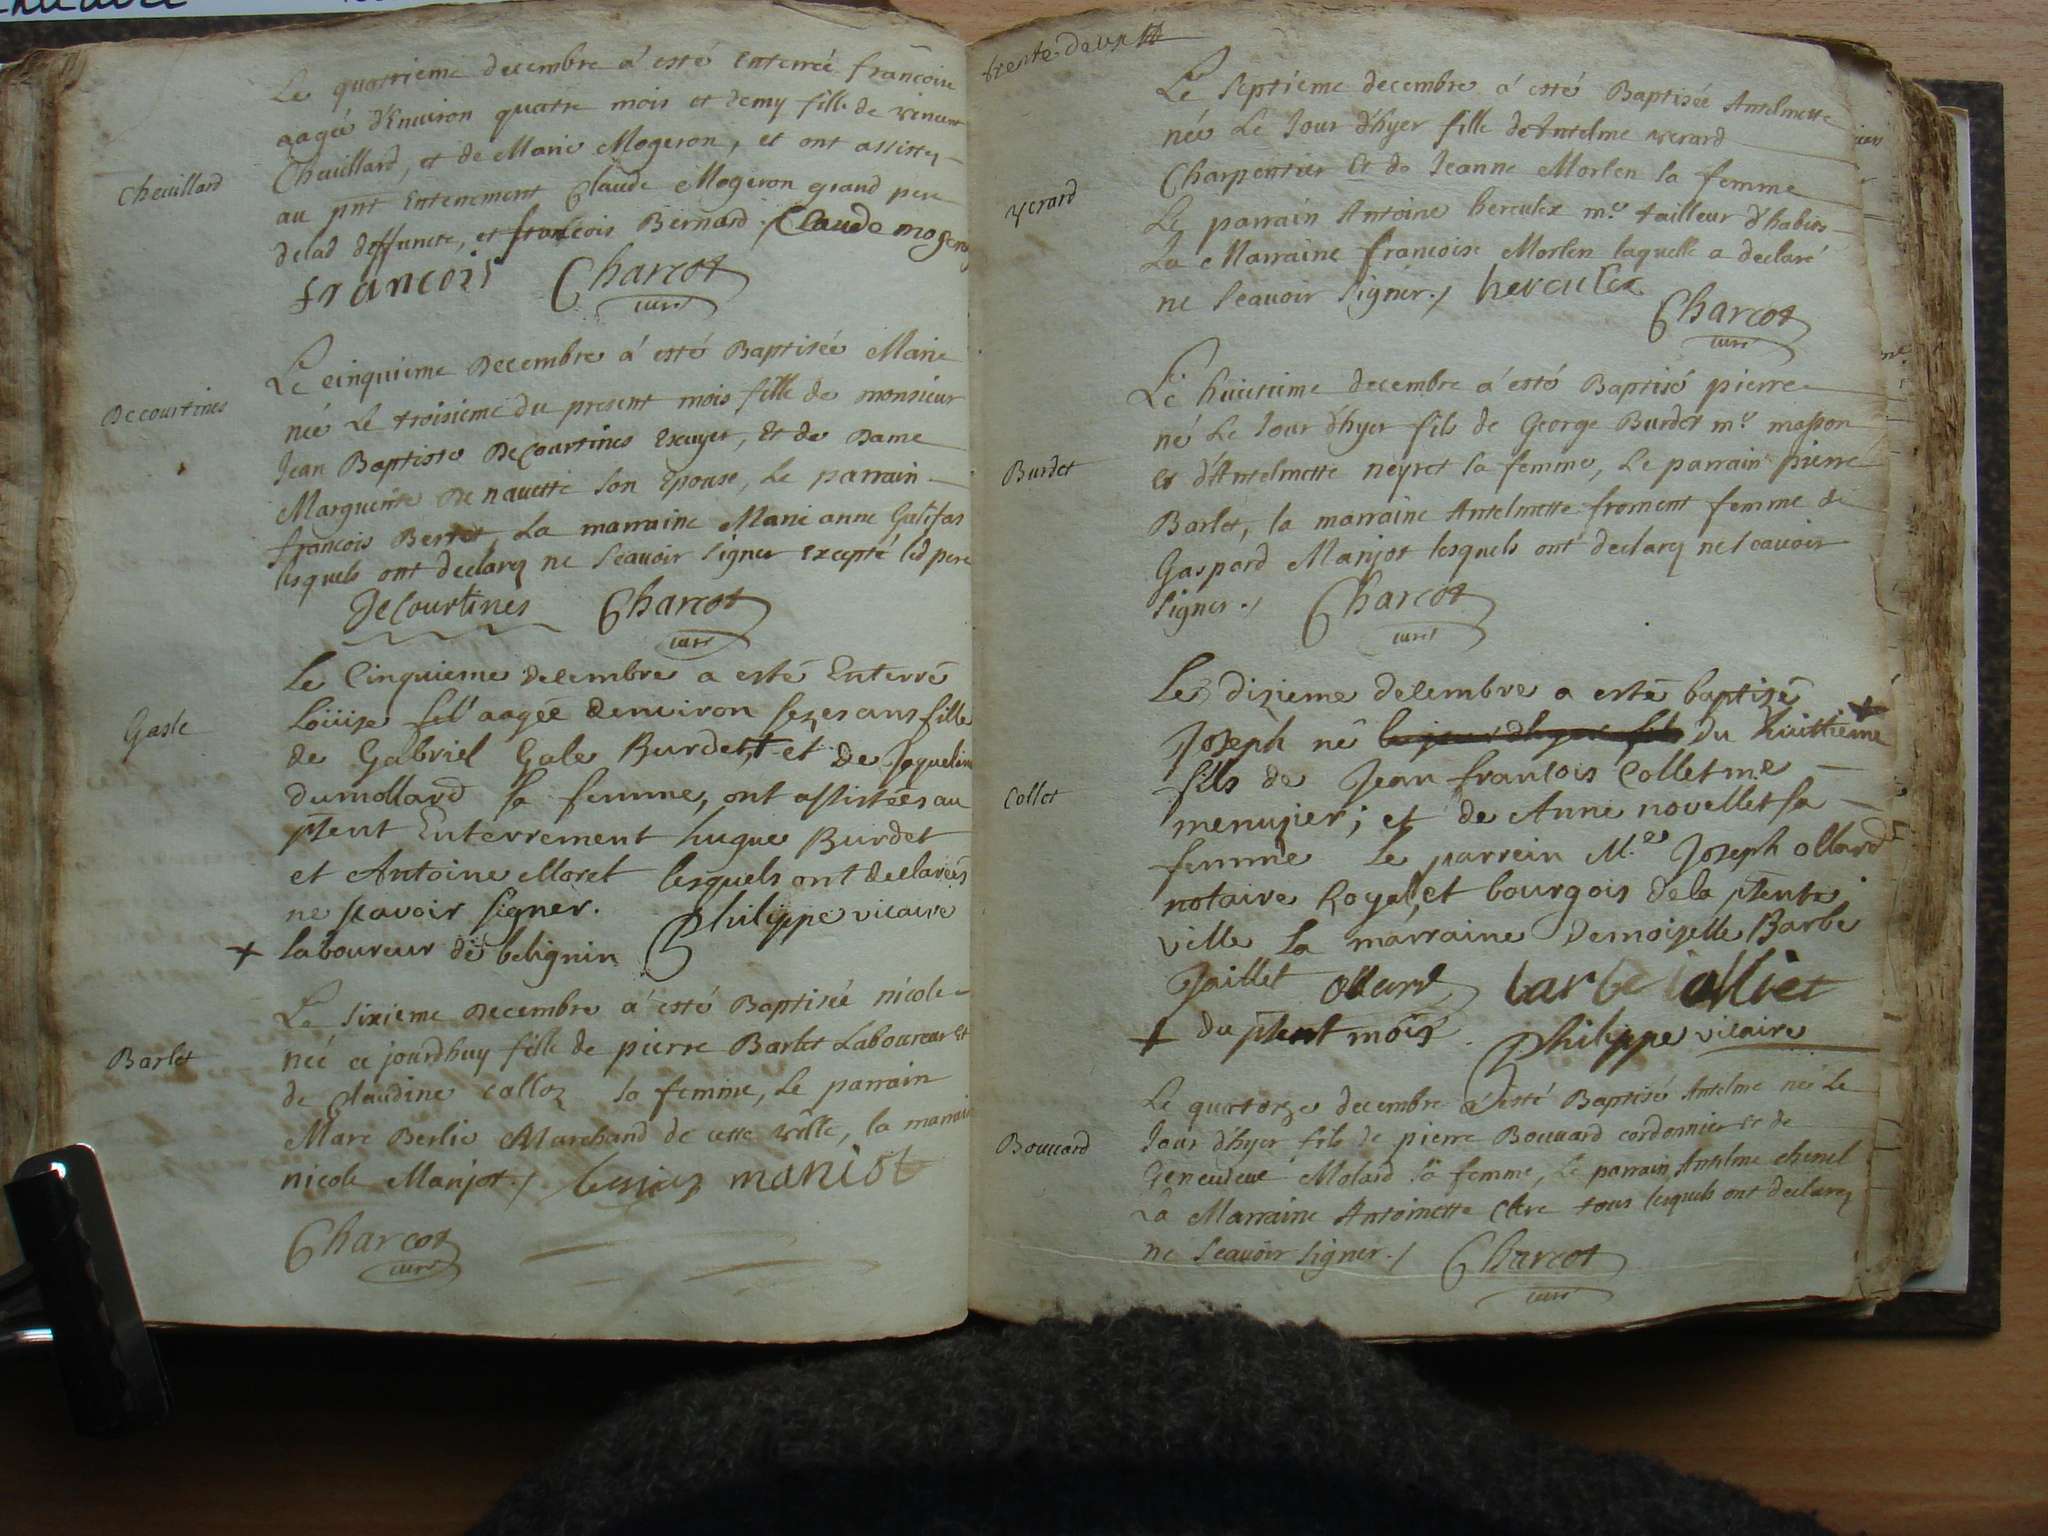 Le quatrieme decembre a esté Enterrée françoise
aagée d'Environ quatre mois et demy fille de vincent
Chevillard, et de Marie Mogeron, et ont assistez
Chevillard
au pnt Enterrement Claude Mogeron grand pere
delad deffuncte, et francois Bernard ./ Claude mogeron
francois Charcot
curé
Le cinquieme Decembre a esté Baptisée Marie
née Le troisieme du present mois fille de monsieur
Decourtines
Jean Baptiste DeCourtines Escuyer, Et de Dame
Marguerite De navette son Epouse, Le parrain
francois Berret, La marraine Marie anne Galifas
lesquels ont declarez ne scavoir signer excepté led pere
DeCourtines Charcot
curé
Le Cinquieme decembre a esté Enterré
Loüise aagée denviron sezes ans fille
Gasle
de Gabriel Gale Burdet + et de Jaqueline
dumollard sa femme, ont assistées au
pñent Enterrement hugue Burdet
et Antoine Moret lesquels ont declarées
ne scavoir signer. Philippe vicaire
+ laboureur de belignin
Le sixieme Decembre a esté Baptisée nicole
née ce jourdhuy fille de pierre Barlet Laboureur et
Barlet
de Claudine Calloz sa femme, Le parrain
Marc Berlie Marchand de cette ville, la marraine
nicole Manjot ./ maniot
Charcot
curé
trente-deux
Le septieme decembre a esté Baptisée Antelmette
née Le Jour d'hyer fille de Antelme verard
Charpentier Et de Jeanne Morlen sa femme
verard
Le parrain Antoine herculex me tailleur d'habits
La Marraine francoise Morlen laquelle a declaré
ne scavoir signer ./ herculex
Charcot
curé
Le huitieme decembre a esté Baptisé pierre
né Le Jour d'hyer fils de George Burdet me masson
Burdet
et d'Antelmette neyret sa femme, Le parrain pierre
Barlet, la marraine Antelmette froment femme de
Gaspard Manjot lesquels ont declarez ne scavoir
signer ./ Charcot
curé
Le dixieme decembre a esté baptisé
Joseph né du huittieme +
fils de Jean francois Collet me
Collet
menuzier; et de Anne novellet sa
femme Le parrein M.e Joseph ollard
notaire Royal, et bourgois de la pñente
ville La marraine Demoizelle Barbe
Jaillet ollard barbe
+ du pñent mois Philippe vicaire
Le quatorze decembre a esté Baptisé Antelme né Le
Jour d'hyer fils de pierre Bouvard cordonnier et de
Bouvard
Genevieve Molard sa femme, Le parrain Antelme chenel
La Marraine Antoinette Clerc tous lesquels ont declarez
ne scavoir signer ./ Charcot
curé